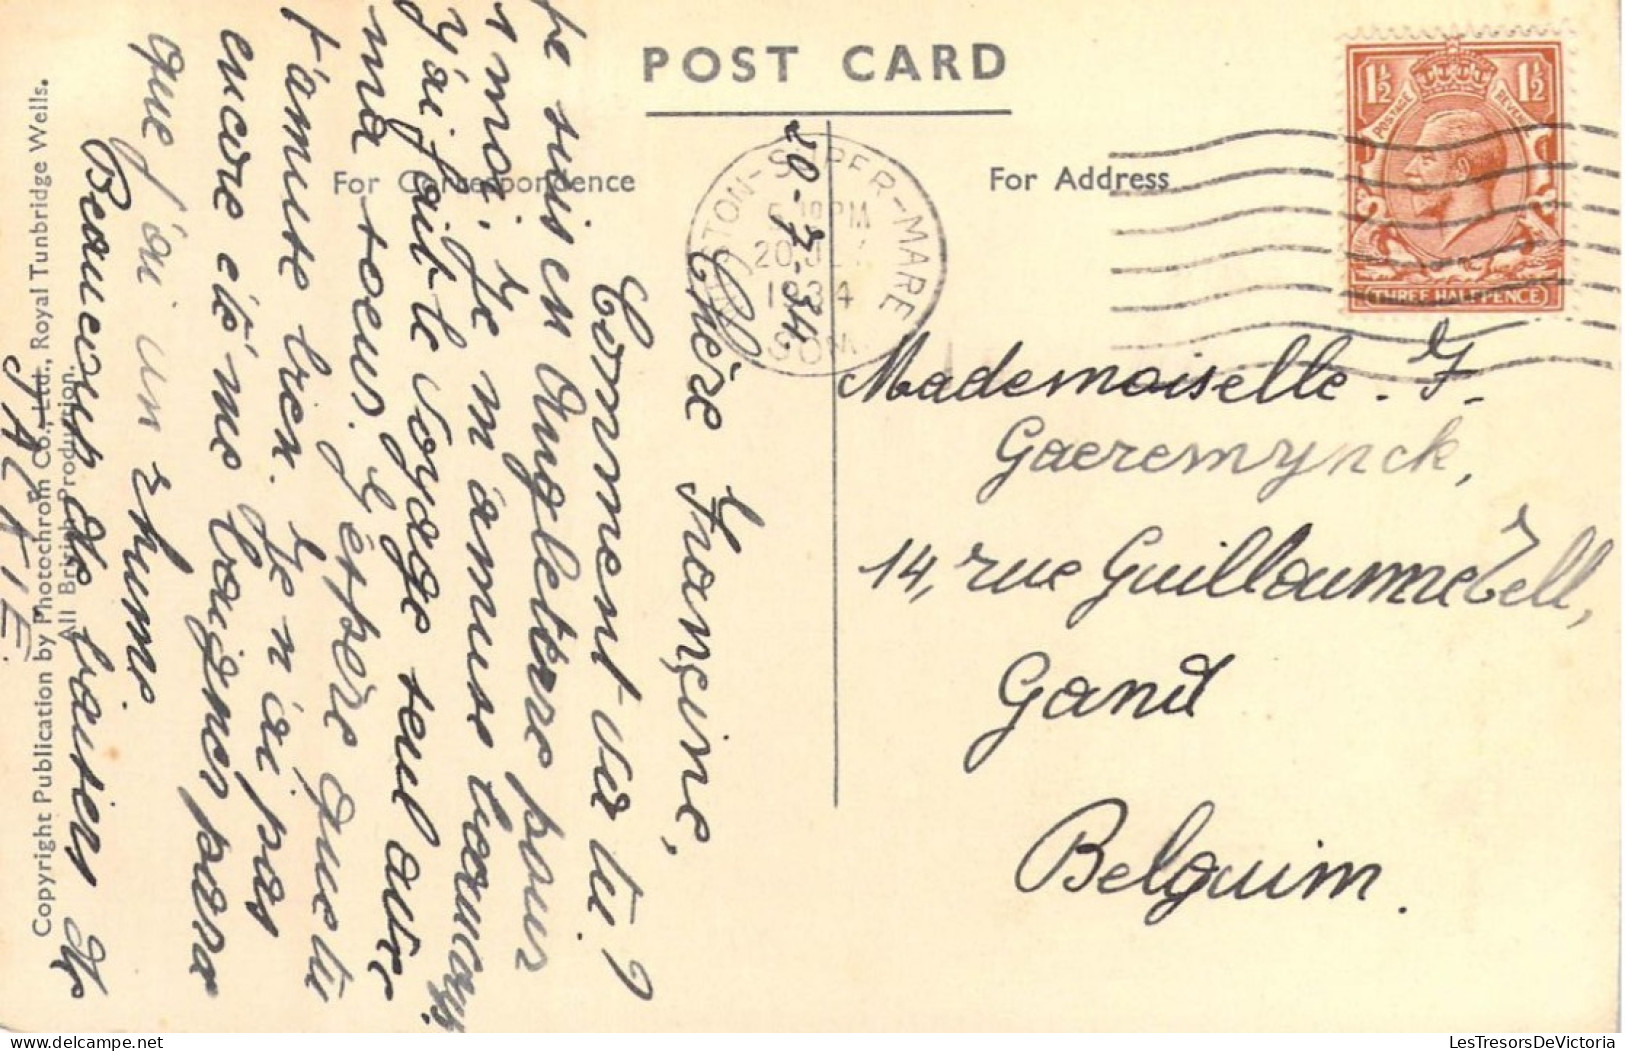 POST CARD
For Correspondence
For Address
WESTON-SUPER-MARE
PM
20 JLY
1934
SOM
1½ 1½
POSTAGE REVENUE
THREE HALFPENCE
20-7-34.
Chère Françine,
Comment va tu?
Je suis en Angleterre pour
1 moi. Je m'amuse beaucoup
J'ai fait le voyage seul avec
ma soeur. J'éspère que tu
t'amuse bien. Je n'ai pas
encore été me baigner parce
que j'ai un rhume
Beaucoup de baisers de
Mademoiselle. F.
Gaeremynck,
14, rue Guillaume Tell,
Gand
Belguim.
Copyright Publication by Photochrom Co., Ltd., Royal Tunbridge Wells.
All British Production.
LesTresorsDeVictoria.com